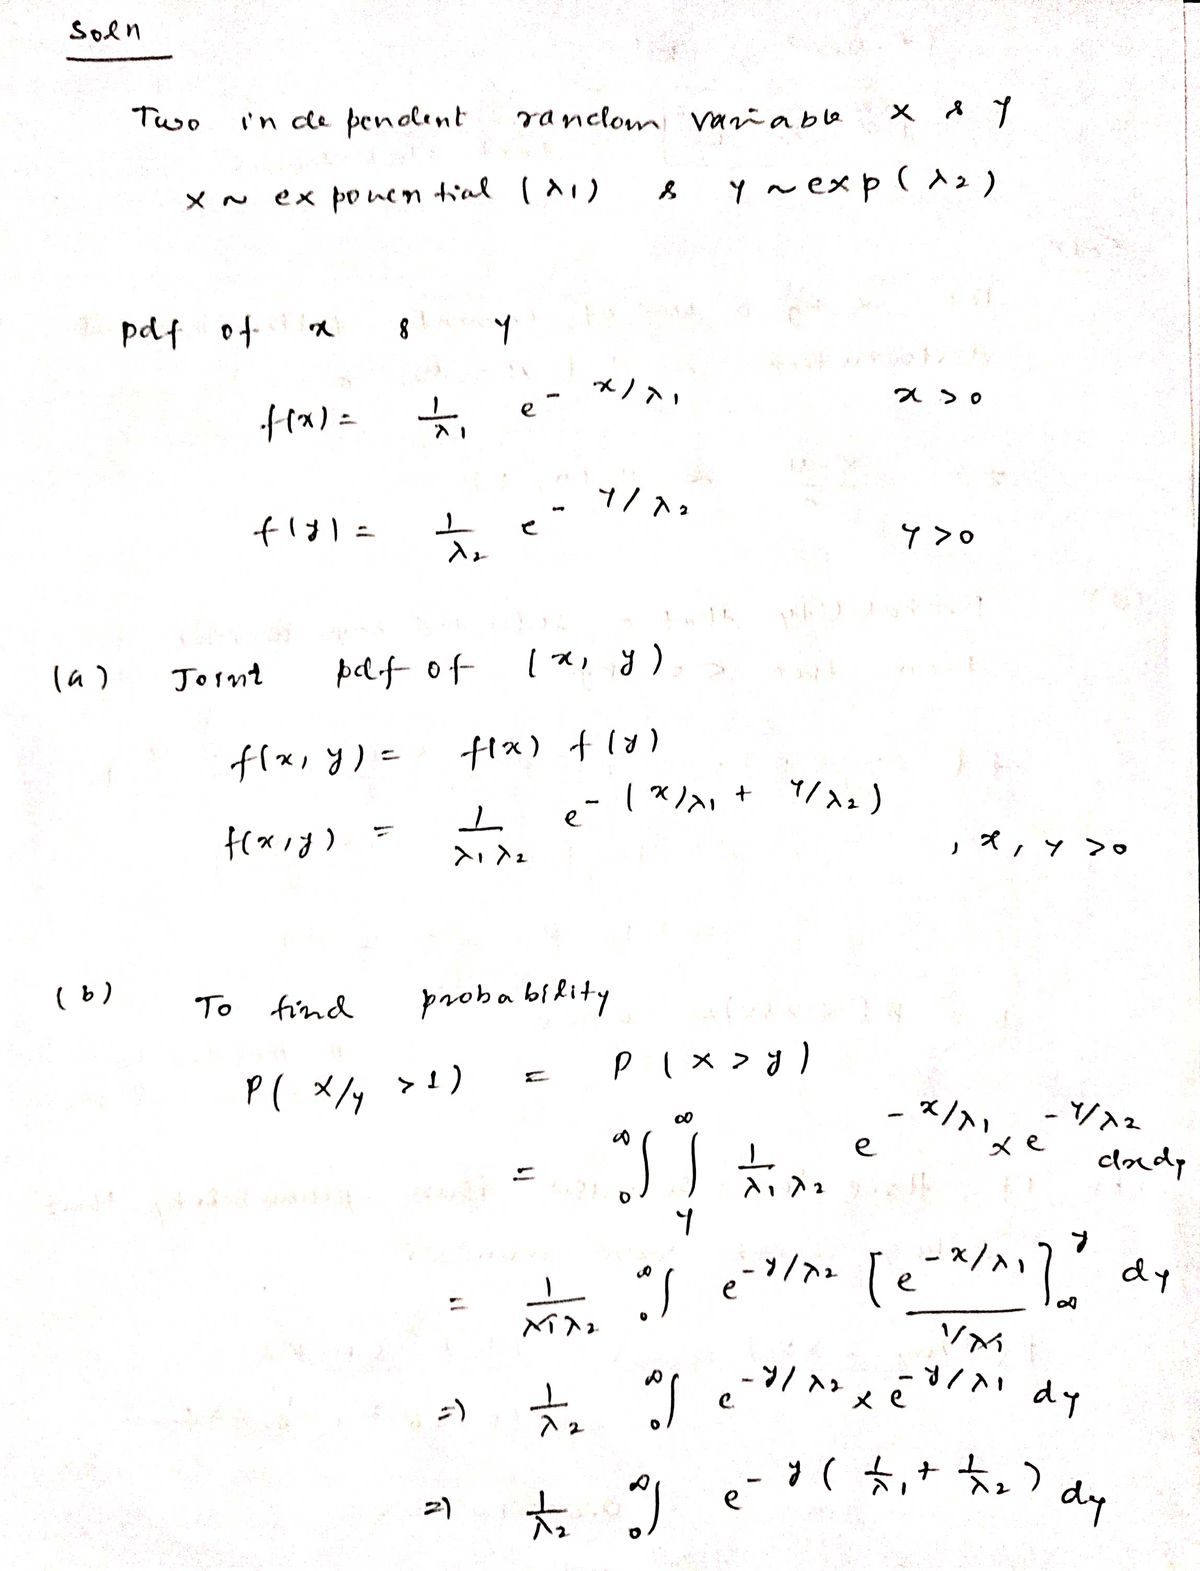 Soln
Two independent random variable x & y
x ~ exponential (λ1) & y ~ exp (λ2)
pdf of x & y
f(x) = 1/λ1 e^-x/λ1 x > 0
f(y) = 1/λ2 e^-y/λ2 y > 0
(a) Joint pdf of (x, y)
f(x, y) = f(x) f(y)
f(x, y) = 1/λ1 λ2 e^-(x/λ1 + y/λ2) , x, y > 0
(b) To find probability
P( x/y > 1) = P (x > y)
= 0∫∞ y∫∞ 1/λ1 λ2 e^-x/λ1 x e^-y/λ2 dxdy
= 1/λ1 λ2 0∫∞ e^-y/λ2 [e^-x/λ1 / 1/λ1]∞^y dy
=) 1/λ2 0∫∞ e^-y/λ2 x e^-y/λ1 dy
=) 1/λ2 0∫∞ e^-y (1/λ1 + 1/λ2) dy